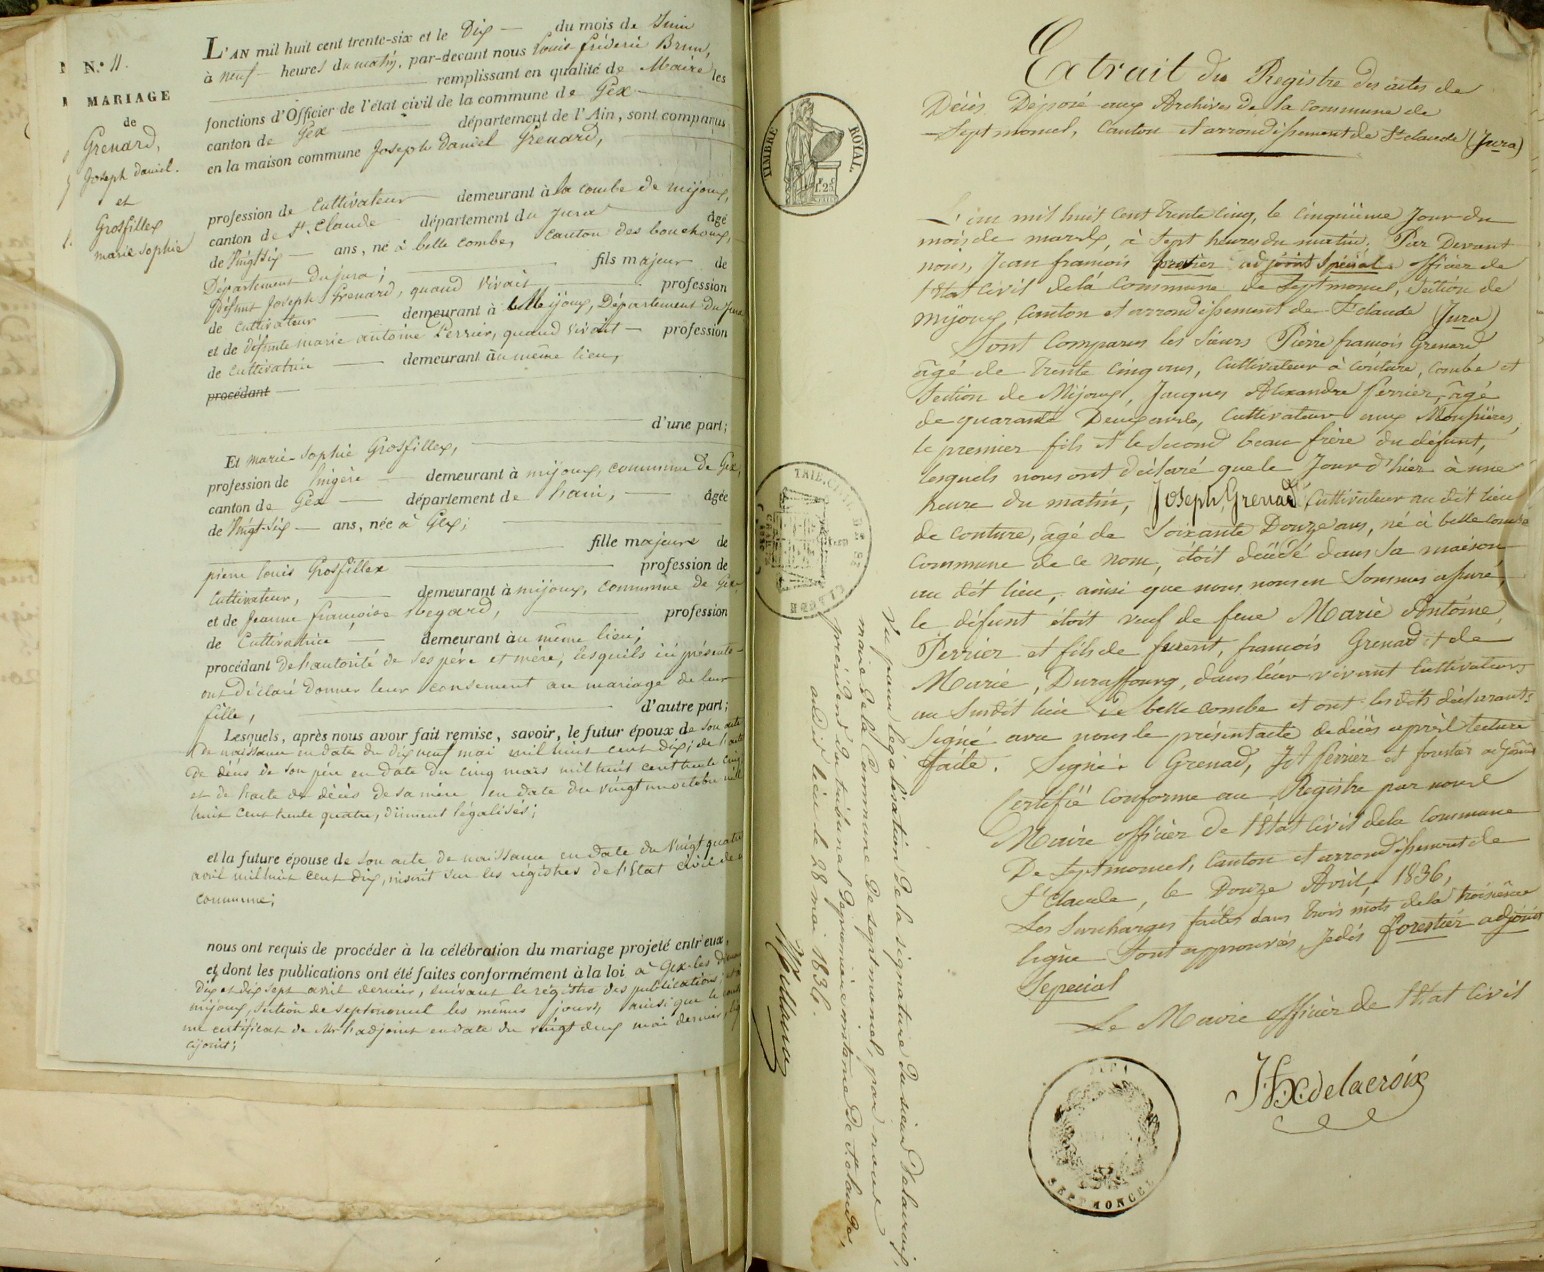 N.° 11.
MARIAGE
de
Grenard,
Joseph daniel.
et
Grosfillex
marie Sophie
L'AN mil huit cent trente-six et le Dix — du mois de Juin
à neuf heures du matin, par-devant nous Louis fréderic Brun,
remplissant en qualité de Maire les
fonctions d'Officier de l'état civil de la commune de Gex
canton de Gex département de l'Ain, sont comparus
en la maison commune Joseph Daniel Grenard,
profession de Cultivateur demeurant à la combe de mijoux,
canton de St. Claude département du Jura âgé
de Vingt Six ans, né à belle combe, canton des bouchoux,
Département du jura; fils majeur de
Défunt Joseph Grenard, quand Vivait profession
de Cultivateur demeurant à Mijoux, Département du Jura
et de défunte marie antoine Perrier, quand vivait — profession
de cultivatrice demeurant au même lieu,
procédant
d'une part;
Et marie-Sophie Grosfillex,
profession de lingère demeurant à mijoux, commune de Gex,
canton de Gex département de l'ain, âgée
de Vingt-Six ans, née à Gex;
fille majeure de
pierre louis Grosfillex profession de
Cultivateur, demeurant à mijoux, commune de Gex,
et de Jeanne françoise Regard, profession
de Cultivatrice demeurant au même lieu;
procédant de l'autorité de ses père et mère, lesquels ici présents
ont Déclaré donner leur consement au mariage de leur
fille, d'autre part;
Lesquels, après nous avoir fait remise, savoir, le futur époux de son acte
de naissance en date du dix neuf mai mil huit cent dix; de l'acte
de décès de son père en date du cinq mars mil huit cent trente cinq
et de l'acte de décès de sa mère en date du vingt un octobre mil
huit cent trente quatre, dûment légalisés;
et la future épouse de son acte de naissance en date du Vingt quatre
avril mil huit cent dix, inscrit sur les régistres de l'Etat civil de
commune;
nous ont requis de procéder à la célébration du mariage projeté entr'eux,
et dont les publications ont été faites conformément à la loi à Gex les
dix et dix sept avril dernier, suivant le régistre des publications
mijoux, section de Septmoncel les mêmes jours, ainsi que le
un certificat de Mr l'adjoint en date du vingt deux mai dernier,
ci joint;
TIMBRE ROYAL
Extrait du Registre des actes de
Décès Déposé aux Archives de la Commune de
Septmoncel, Canton et arrondissement de St claude (Jura)
L'an mil huit cent trente cinq, le cinquième Jour du
mois de mars, à Sept heures du matin. Par Devant
nous, Jean françois forestier adjoint spécial officier de
l'Etat Civil de la Commune de Septmoncel, Section de
Mijoux Canton et arrondissement de St claude (Jura)
Sont Comparus les Sieurs Pierre françois Grenard
âgé de trente Cinq ans, Cultivateur à Couture, Combe et
Section de Mijoux, Jacques Alexandre Perrier, âgé
de quarante Deux ans, Cultivateur aux Moussières,
le premier fils et le Second beau frère du défunt,
lesquels nous ont déclaré que le Jour d'hier à une
heure du matin, Joseph, Grenad, Cultivateur au dit lieu
de Couture, âgé de Soixante Douze ans, né à belle combe
Commune de ce nom, étoit décédé dans sa maison
au dit lieu, ainsi que nous nous en Sommes assuré,
le défunt étoit Veuf de feue Marie Antoine,
Perrier et fils de furent, françois Grenad et de
Marie, Duraffourg, dans leur vivant Cultivateurs
au Susdit lieu de belle combe et ont les dits déclarants
Signé avec nous le présent acte de décès après lecture
faite. Signé: Grenad, Jx Perrier et forestier adjoint
Certifié Conforme au Registre par nous
Maire officier de l'Etat Civil de la Commune
De Septmoncel, Canton et arrondissement de
St Claude, le Douze Avril, 1836,
Les Surcharges faites dans trois mots de la troisième
ligne Sont approuvés, Jedis forestier adjoint
Sepécial
Le Maire officier de l'Etat Civil
JFX delacroix
SEPTMONCEL
TRIB. CIVIL DE ST CLAUDE
Vu pour légalisation de la signature du sieur Delacroix,
maire de la Commune de Septmoncel, par nous
président du tribunal de première instance de St claude,
audit lieu le 28 mai 1836.